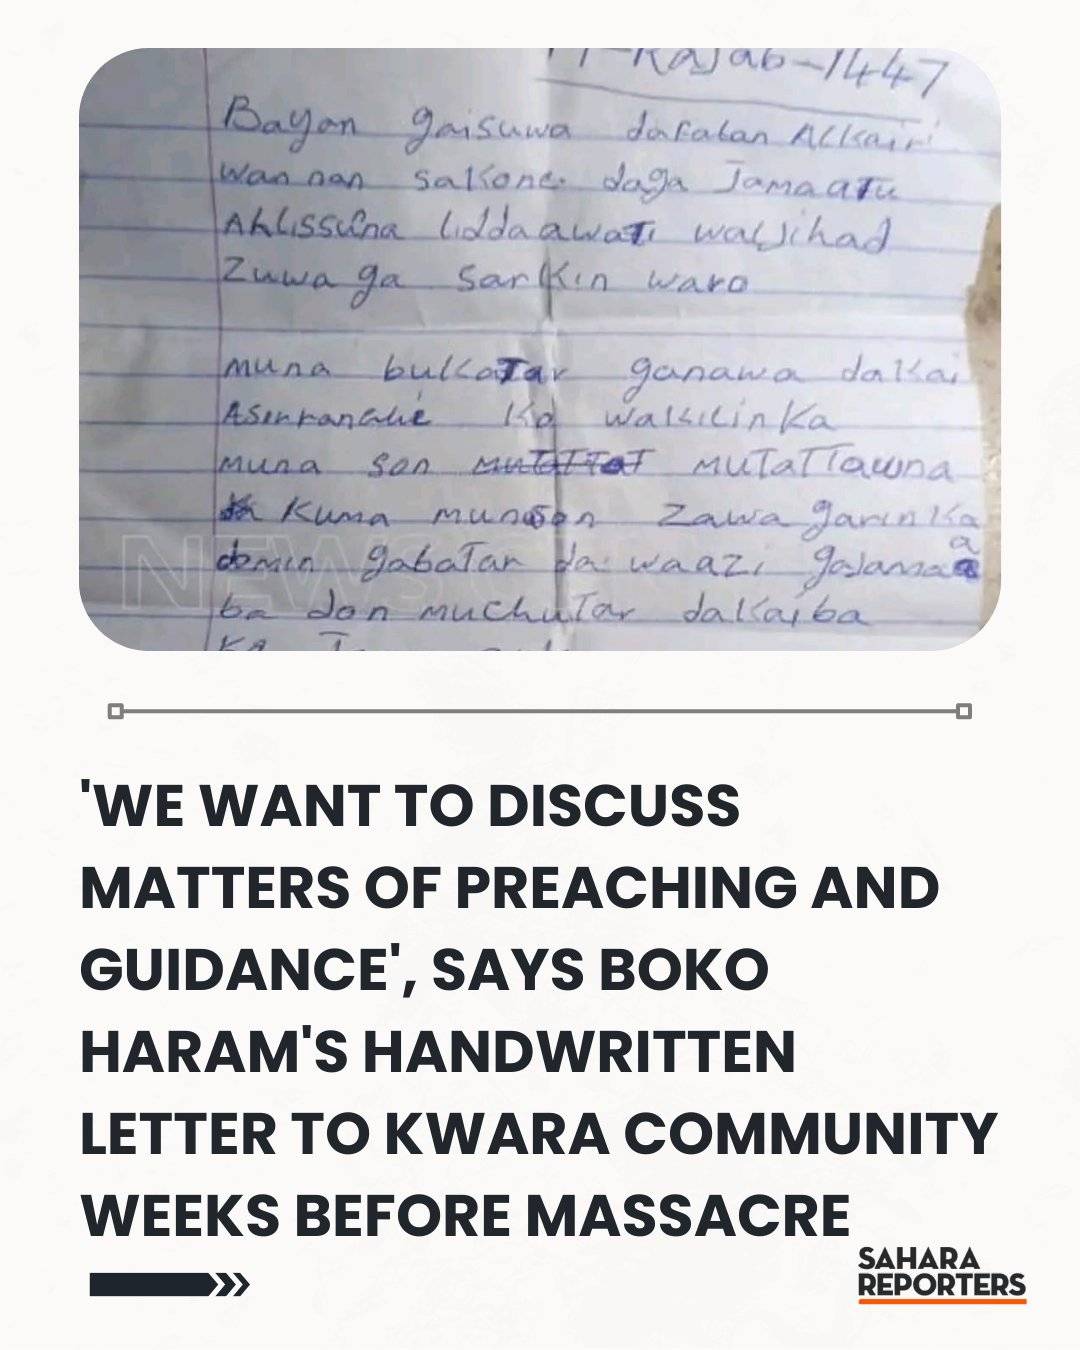 17-Rajab-1447
Bayan gaisuwa dafatan Alkairi
wannan sakone daga Jamaatu
Ahlissuna liddaawati waljihad
Zuwa ga sarkin waro
muna bukatar ganawa dakai
Asirranche ko wakilinka
muna son mutattauna
Kuma munason zawa garinka
domin gabatar da waazi
ba don muchutar dakaiba
NEWS
'WE WANT TO DISCUSS
MATTERS OF PREACHING AND
GUIDANCE', SAYS BOKO
HARAM'S HANDWRITTEN
LETTER TO KWARA COMMUNITY
WEEKS BEFORE MASSACRE
SAHARA
REPORTERS